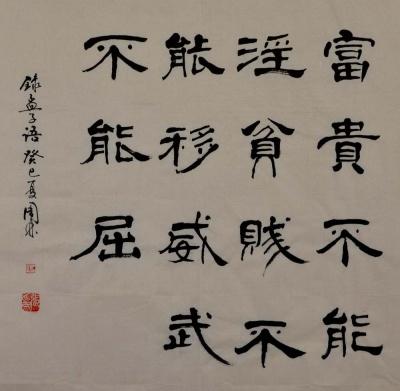 富貴不能
淫貧賤不
能移威武
不能屈
錄孟子語癸巳夏周